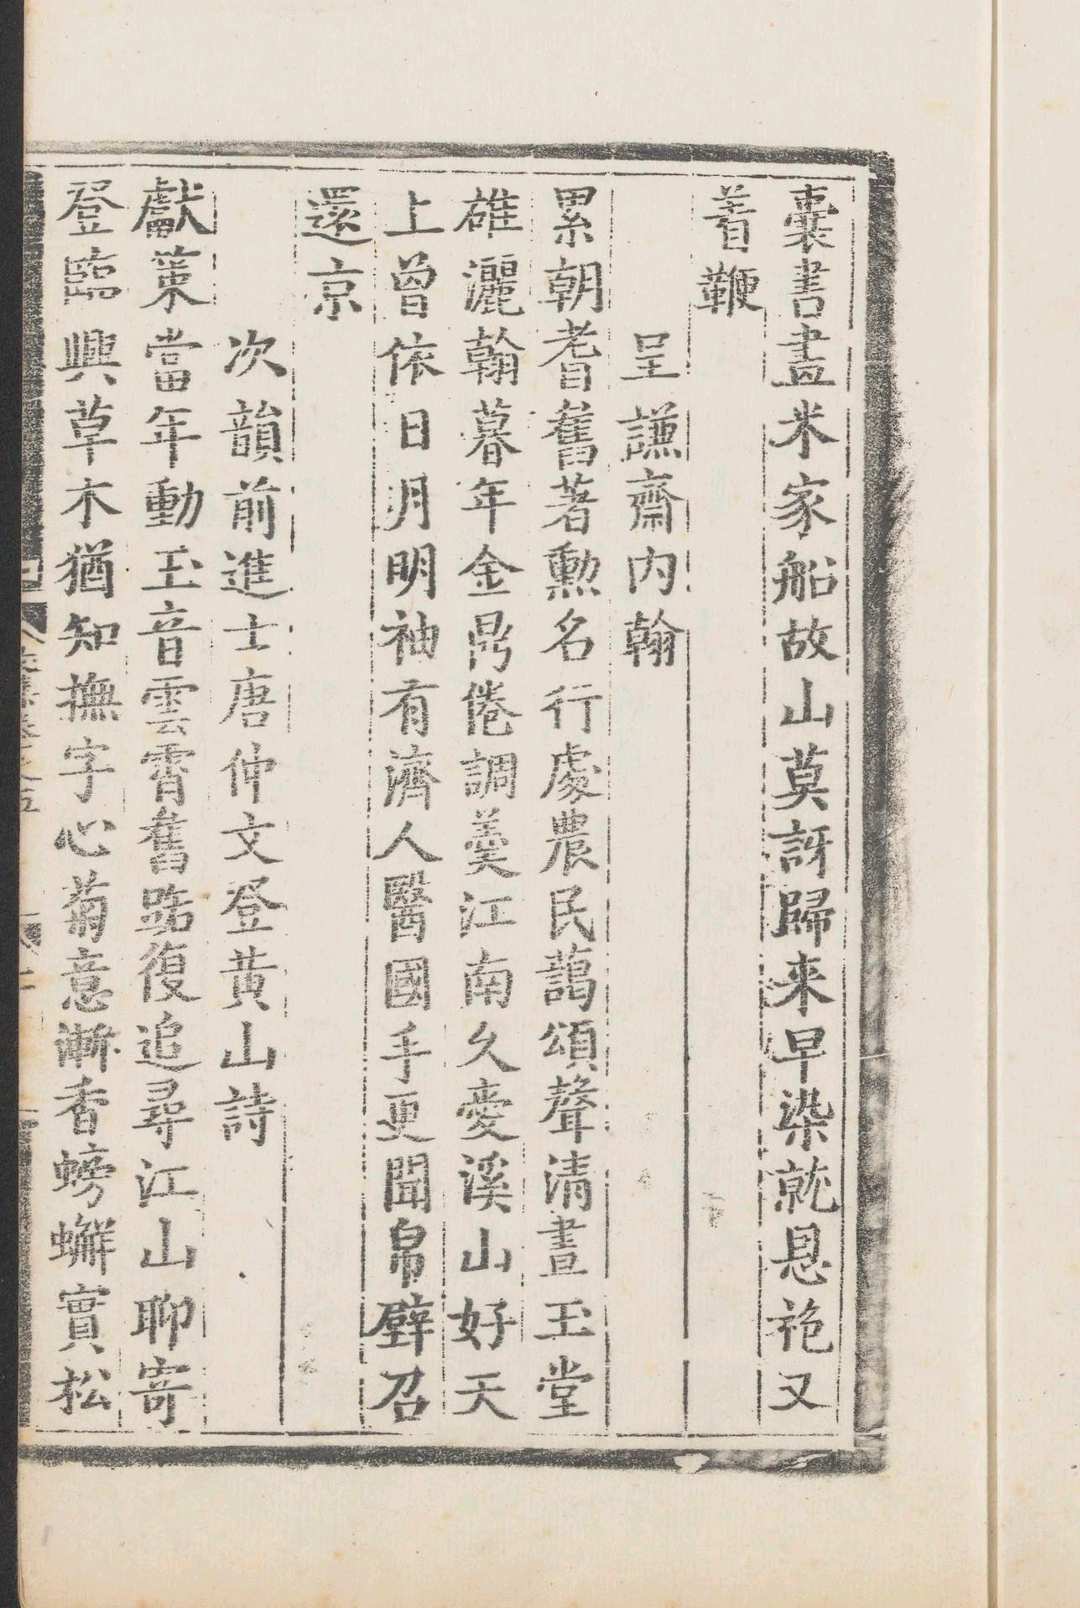 囊書畫米家船故山莫訝歸来早染就恩袍又
着鞭
呈謙齋内翰
累朝耆舊著勲名行處農民藹頌聲清晝玉堂
雄灑翰暮年金鼎倦調羹江南久愛溪山好天
上曽依日月明袖有濟人醫國手更聞帛璧召
還京
次韻前進士唐仲文登黄山詩
獻策當年動玉音雲霄舊路復追尋江山聊寄
登臨興草木猶知撫字心菊意漸香螃蠏實松